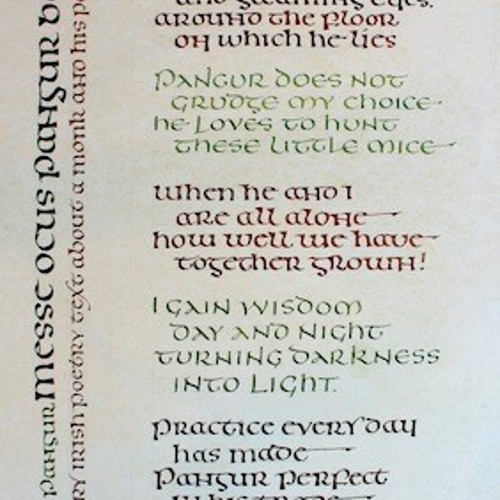 and gleaming eyes.
around the floor
on which he lies
Pangur does not
grudge my choice
he loves to hunt
these little mice
When he and I
are all alone
how well we have
together grown!
I gain wisdom
day and night
turning darkness
into light.
Practice every day
has made
Pangur perfect
Pangur
messe ocus pangur b
ry irish poetry text about a monk and his p